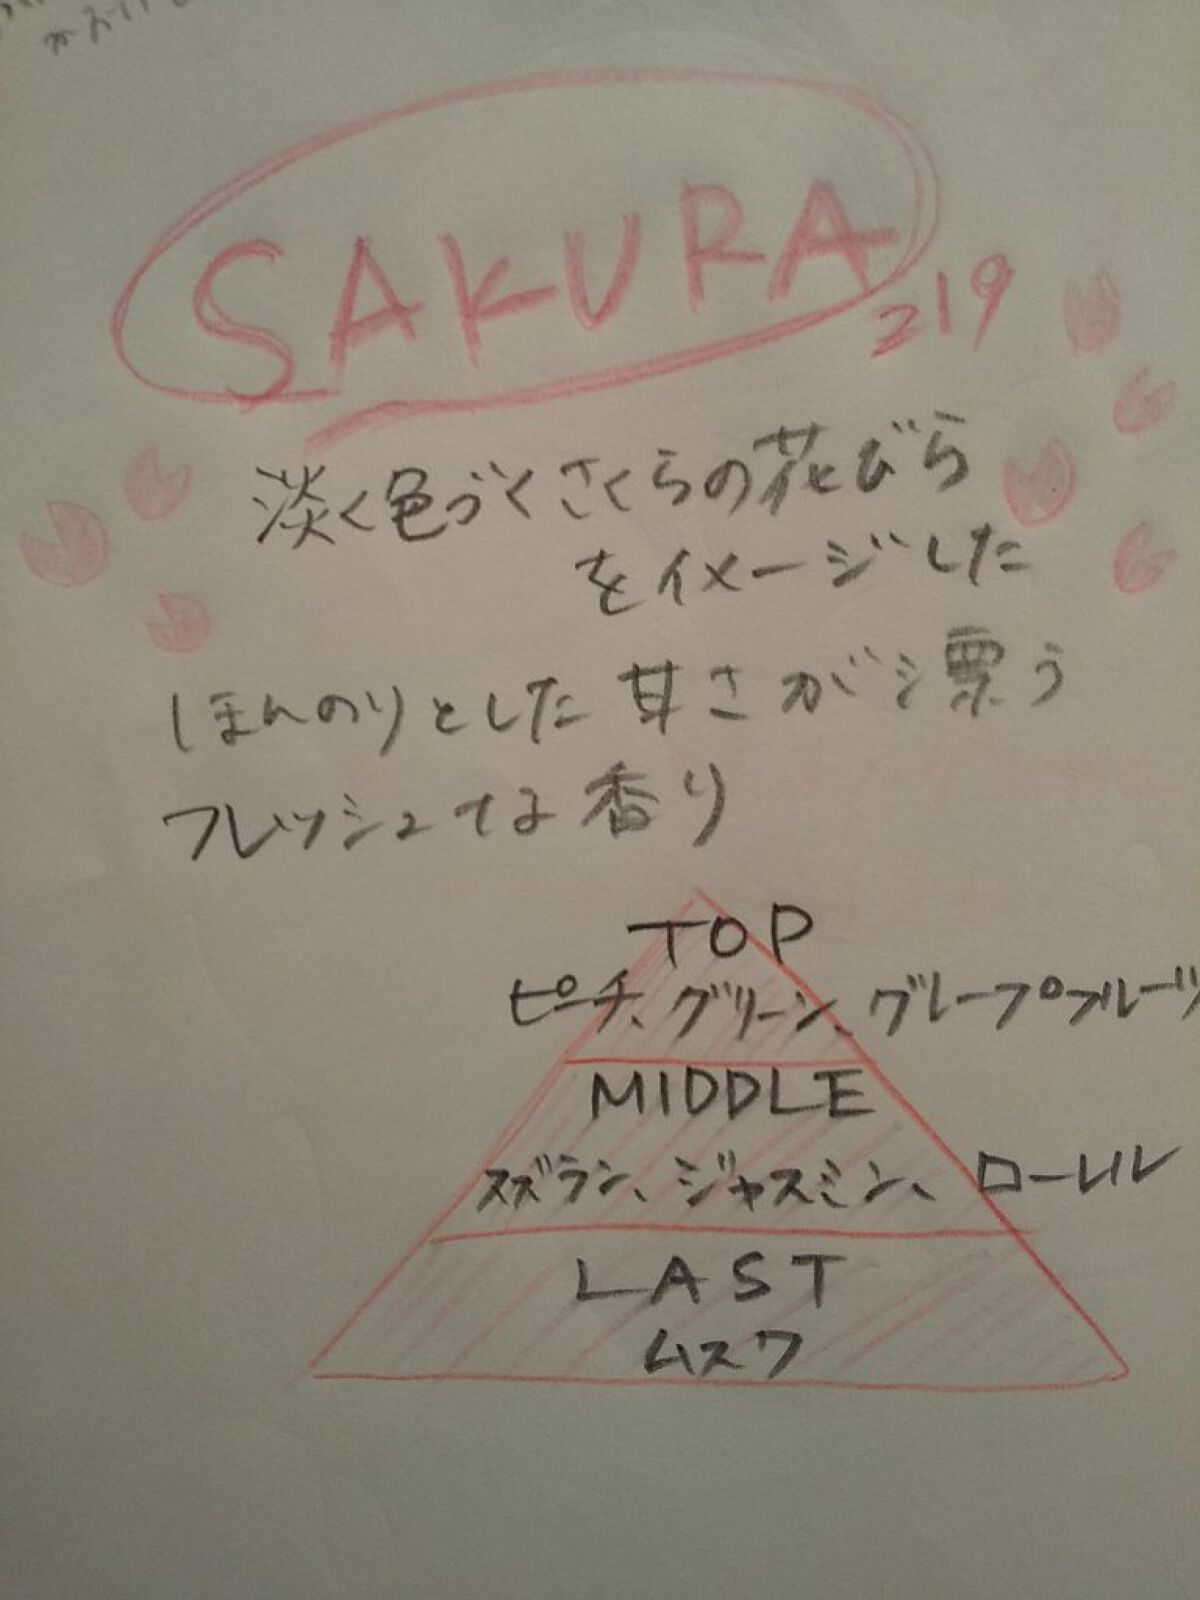 SAKURA
219
淡く色づくさくらの花びら
をイメージした
ほんのりとした甘さが漂う
フレッシュな香り
TOP
ピーチ、グリーン、グレープフルーツ
MIDDLE
スズラン、ジャスミン、ローレル
LAST
ムスク